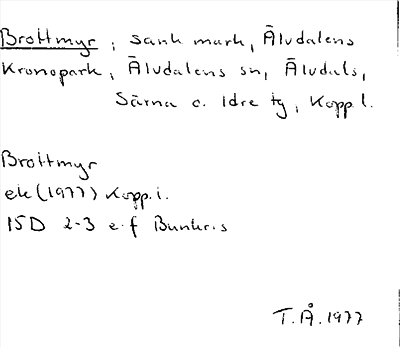 Brottmyr ; sank mark, Älvdalens
Kronopark, Älvdalens sn, Älvdals,
Särna o. Idre tg, Kopp. l.
Brottmyr
ek (1977) Kopp. l.
15D 2-3 e-f Bunkris
T.Å. 1977